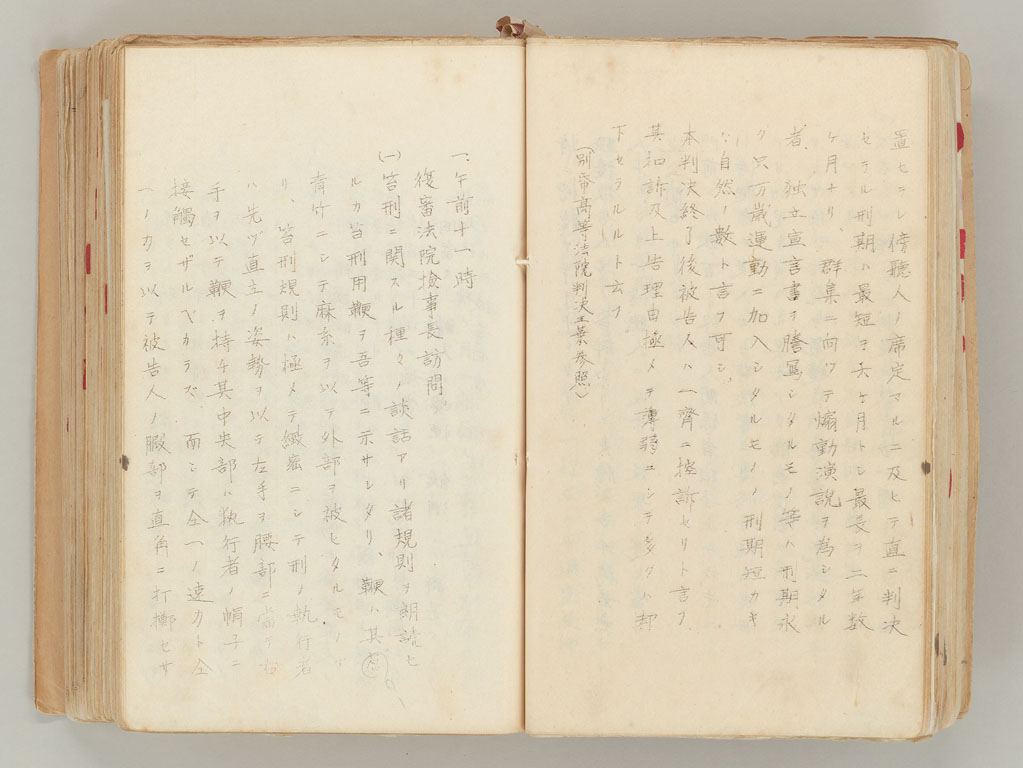 置セラレ傍聽人ノ席定マルニ及ヒテ直ニ判決
セラル刑期ハ最短ヲ六ケ月トシ最長ヲ二年数
ケ月ナリ、群集ニ向ツテ煽動演説ヲ為シタル
者、独立宣言書ヲ謄写シタルモノ等ハ刑期永
ク只万歳運動ニ加入シタルモノノ刑期短カキ
ハ自然ノ数ト言フ可シ、
本判决終了後被告人ハ一齊ニ控訴セリト言フ
其扣訴及上告理由極メテ薄弱ニシテ多クハ却
下セラルルト云フ
(別帋高等法院判决工葉参照)
一、午前十一時
復審法院検事長訪問
(一)笞刑ニ関スル種々ノ談話アリ諸規則ヲ朗読セ
ルカ笞刑用鞭ヲ吾等ニ示サレタリ、鞭ハ其
青竹ニシテ麻糸ヲ以テ外部ヲ被ヒタルモノナ
リ、笞刑規則ハ極メテ緻密ニシテ刑ノ執行者
ハ先ヅ直立ノ姿勢ヲ以テ左手ヲ腰部ニ當テ右
手ヲ以テ鞭ヲ持チ其中央部ハ執行者ノ帽子ニ
接觸セザルベカラズ、而シテ仝一ノ速力ト仝
一ノカヲ以テ被告人ノ臀部ヲ直角ニ打擲セサ